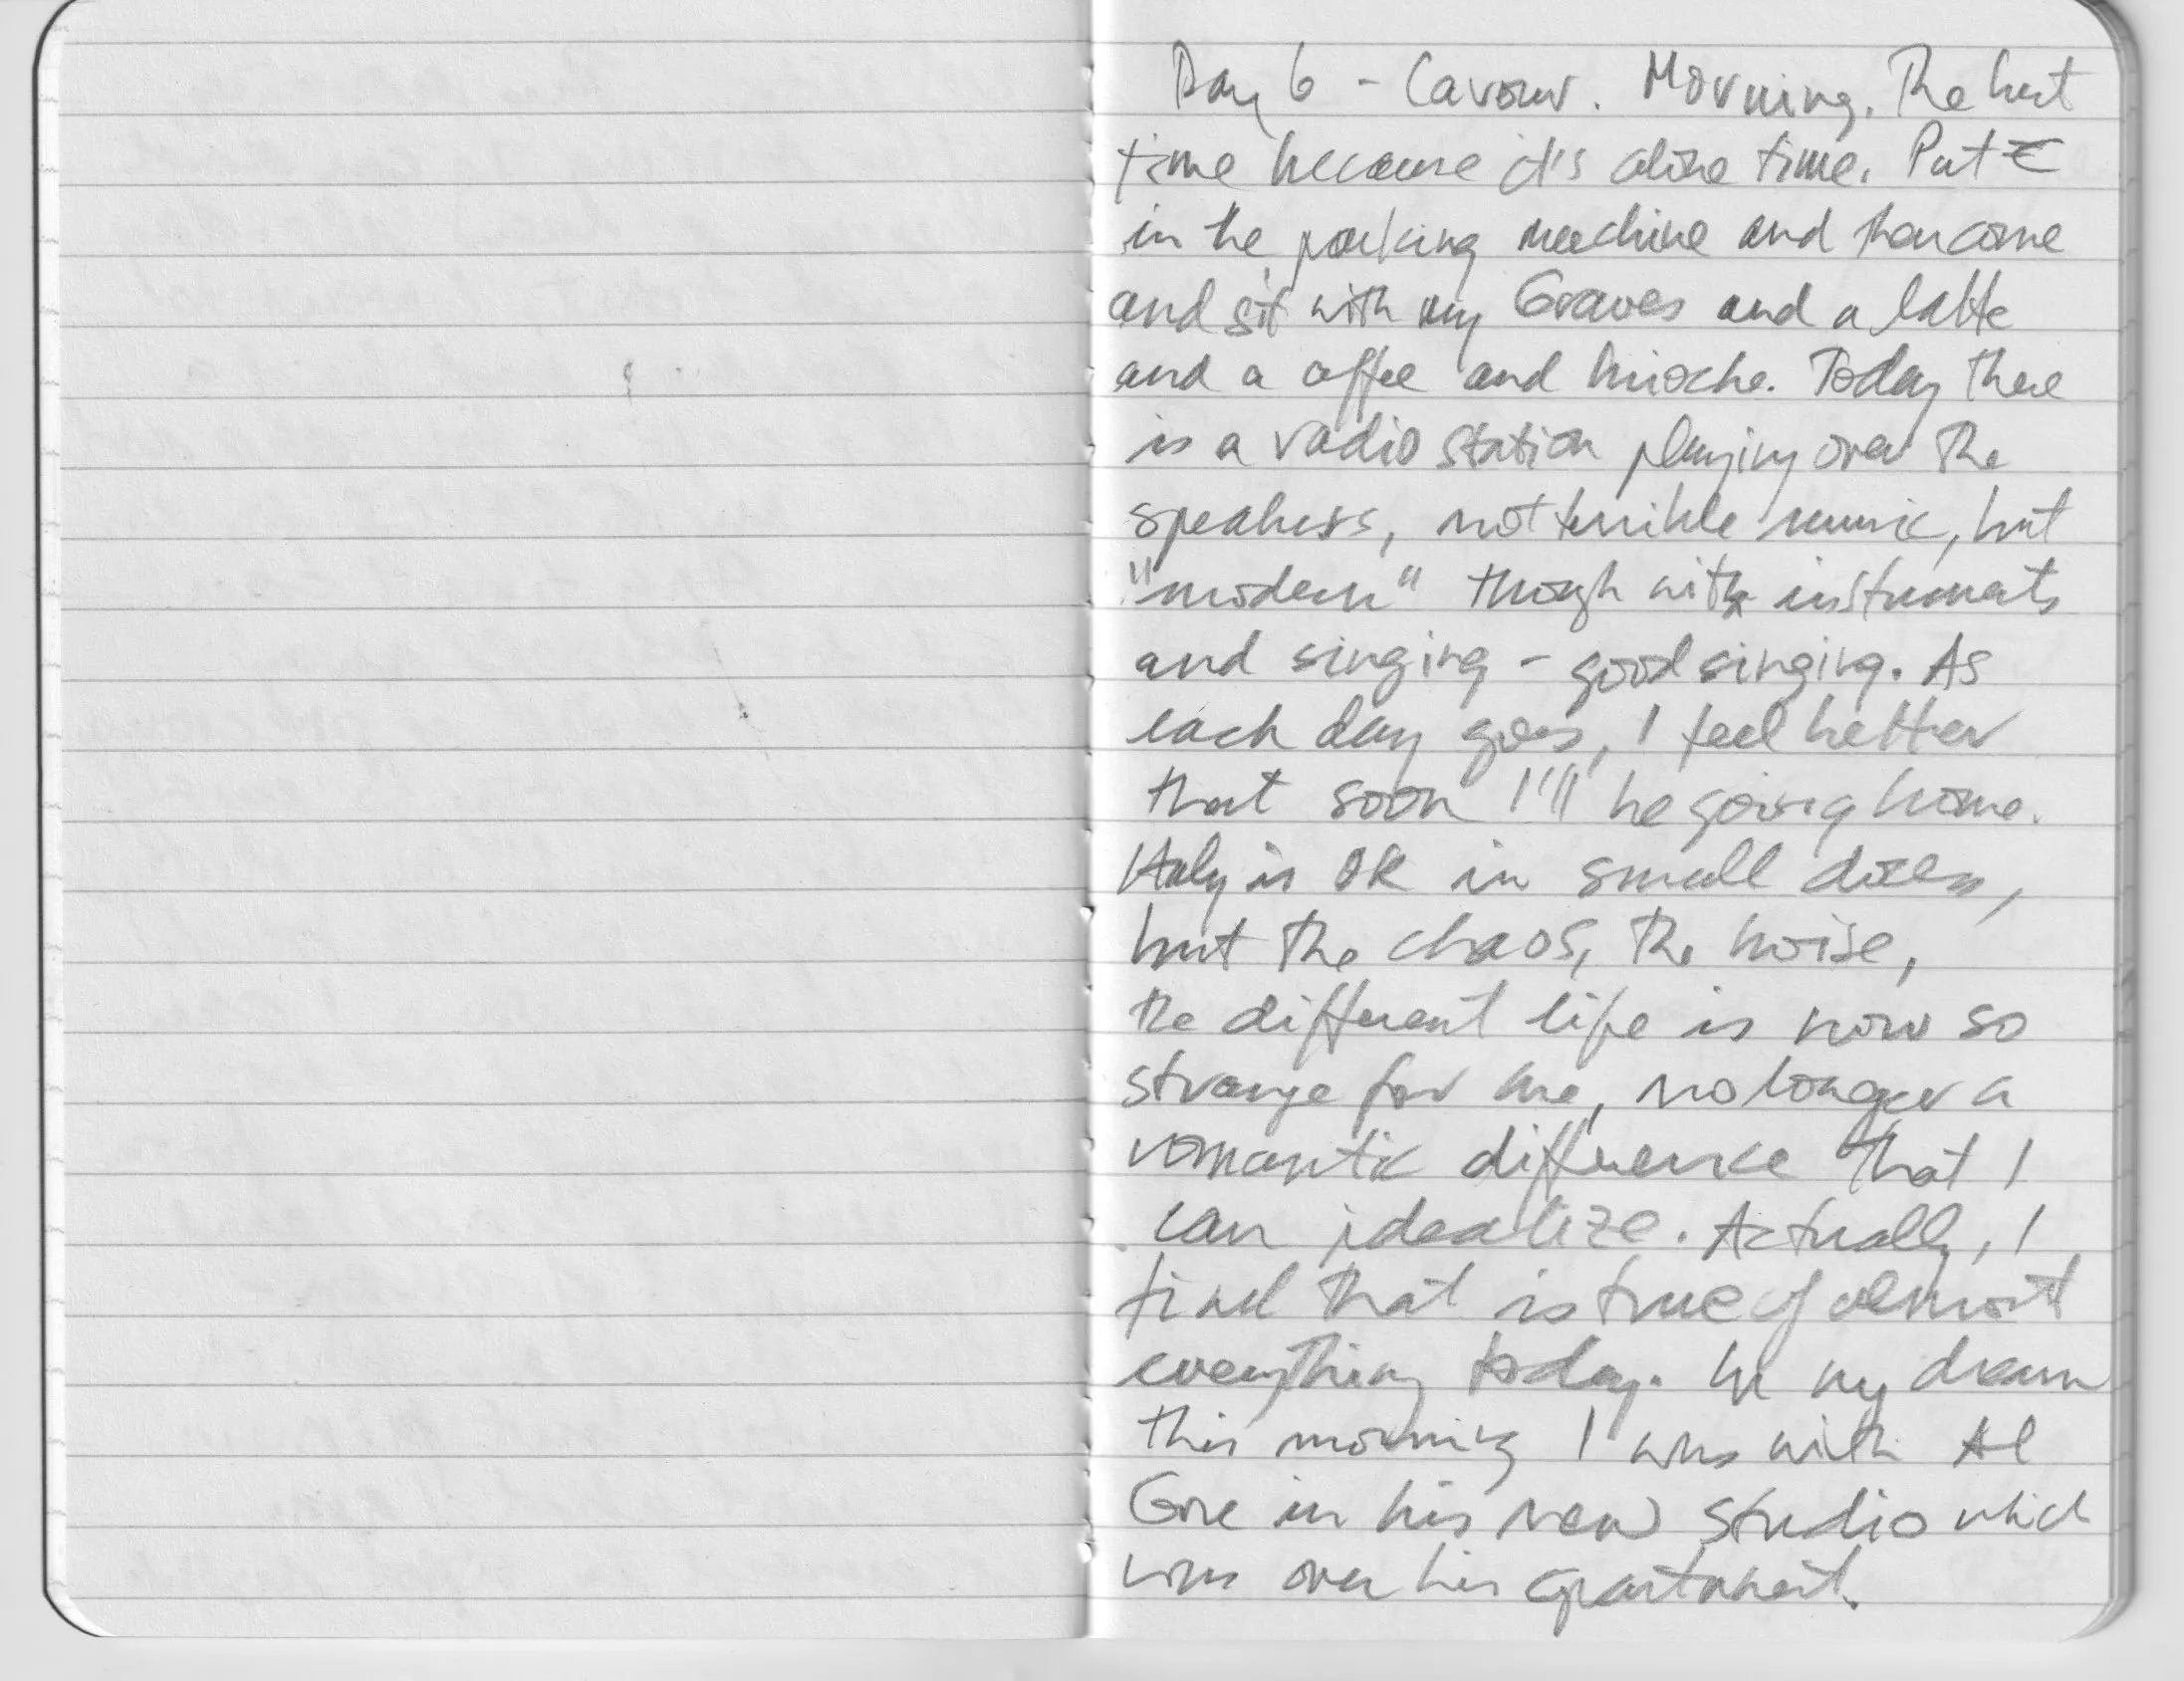 Day 6 - Cavour. Morning. The best
time because it's alone time. Put €
in the parking machine and then come
and sit with my Graves and a latte
and a coffee and brioche. Today there
is a radio station playing over the
speakers, not terrible music, but
"modern" though with instruments
and singing - good singing. As
each day goes, I feel better
that soon I'll be going home.
Italy is OK in small doses,
but the chaos, the noise,
the different life is now so
strange for me, no longer a
romantic difference that I
can idealize. Actually, I
find that is true of almost
everything today. In my dream
this morning I was with Al
Gore in his new studio which
was over his apartment.